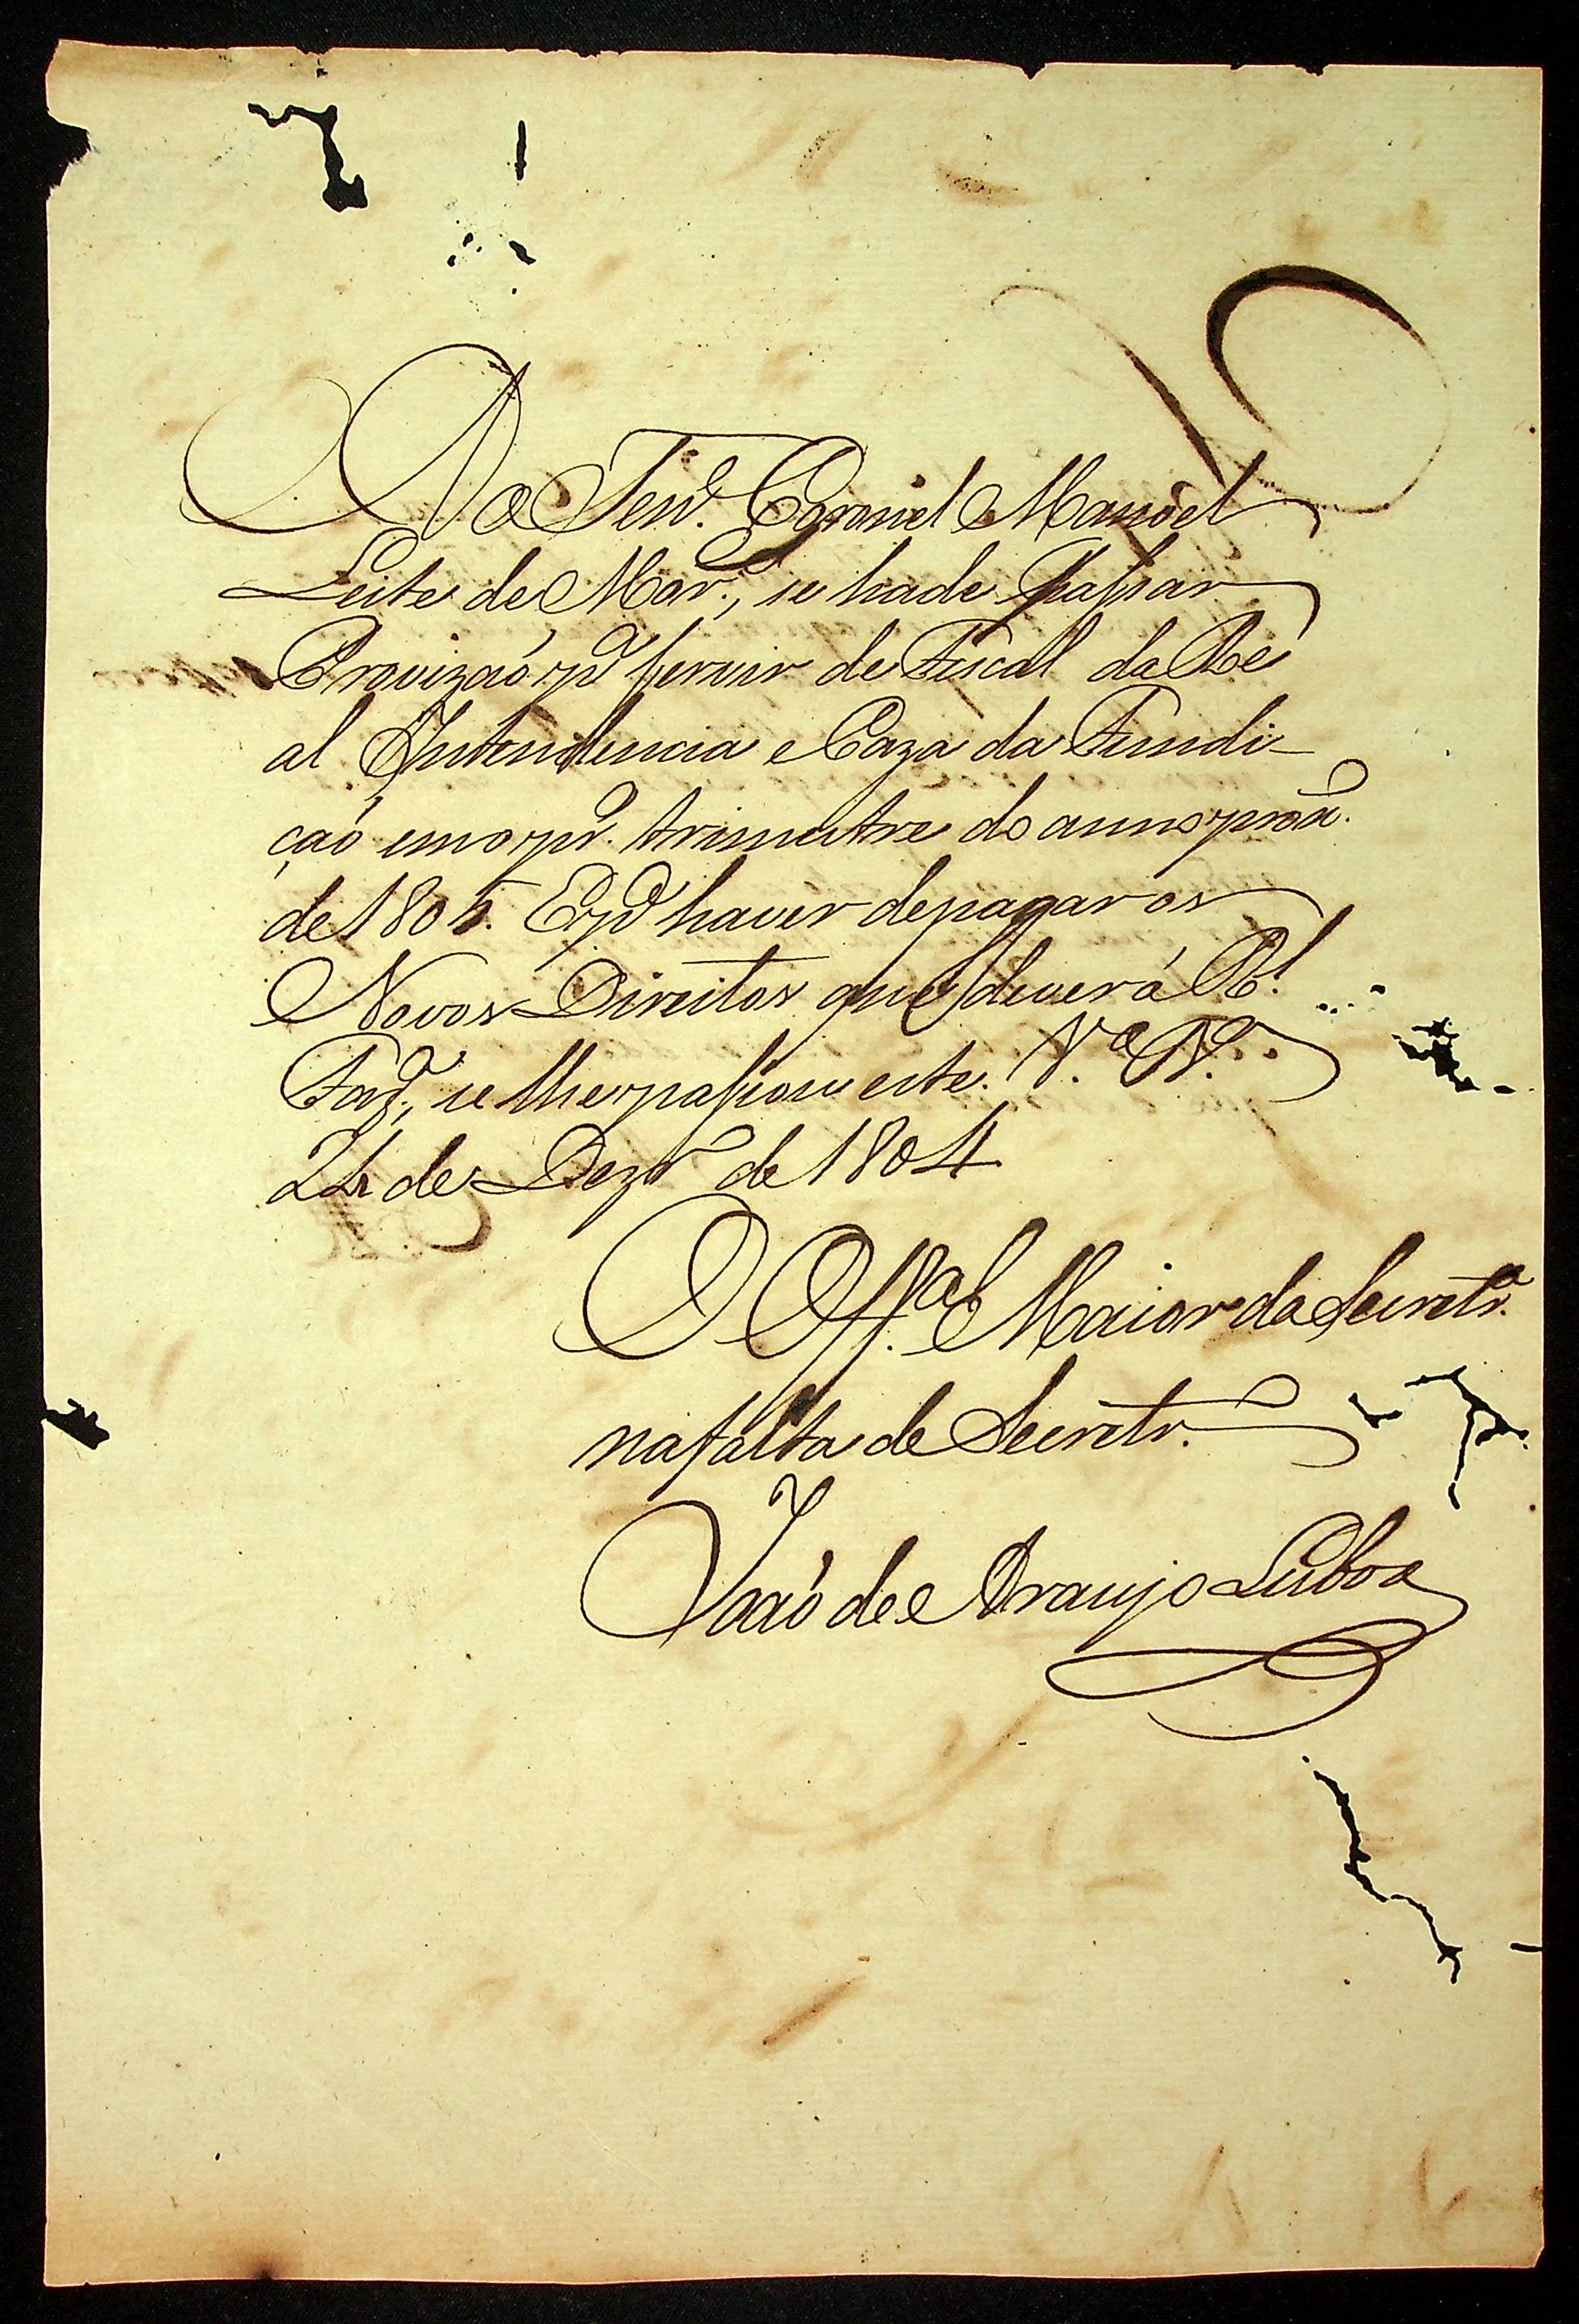 Ao Ten.e Coronel Manoel
Leite de Mor.s, se hade passar
Provizaó p.a servir de Fiscal da Re
al Intendencia e Caza da Fundi-
çaó em o pr.o trimestre do anno prox.o
de 1805. E p.a haver de pagar os
Novos Direitos que deverá R.l
Faz.da, se lhe passou este. V.a R.ca
24 de Dezbr.o de 1804
O Off.al Maior da Secretr.a
na falta de Secretr.o
Joaó de Araujo Lisboa